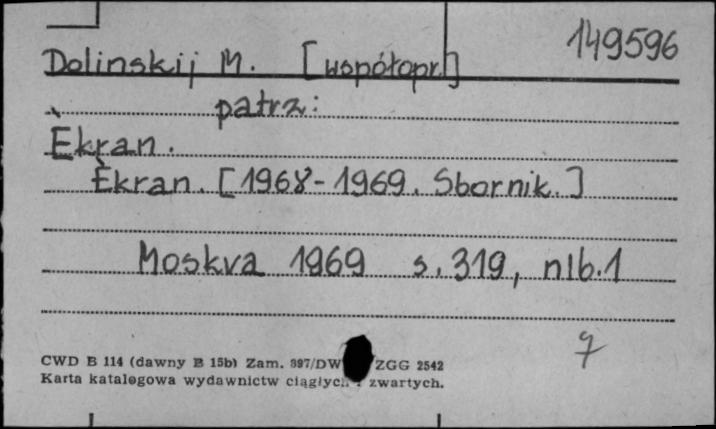 149596
Dolinskij M. [współopr.]
patrz:
Èkran.
Èkran. [1968-1969. Sbornik.]
Moskva 1969 s. 319, nlb. 1
CWD B 114 (dawny B 15b) Zam. 397/DW ZGG 2542
Karta katalogowa wydawnictw ciągłych i zwartych.